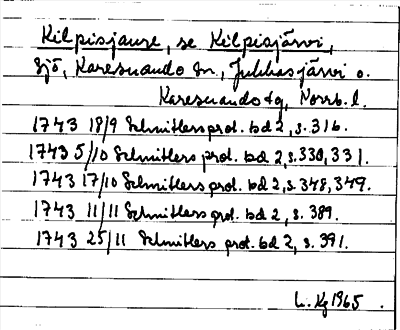 Kilpisjaure, se Kilpisjärvi,
Sjö, Karesuando sn, Jukkasjärvi o.
Karesuando tg, Norrb. l.
1743 18/9 Schnitlers prot. bd 2, s. 316.
1743 5/10 Schnitlers prot. bd 2, s. 330, 331.
1743 17/10 Schnitlers prot. bd 2, s. 348, 349.
1743 11/11 Schnitlers prot. bd 2, s. 389.
1743 25/11 Schnitlers prot. bd 2, s. 391.
1965.